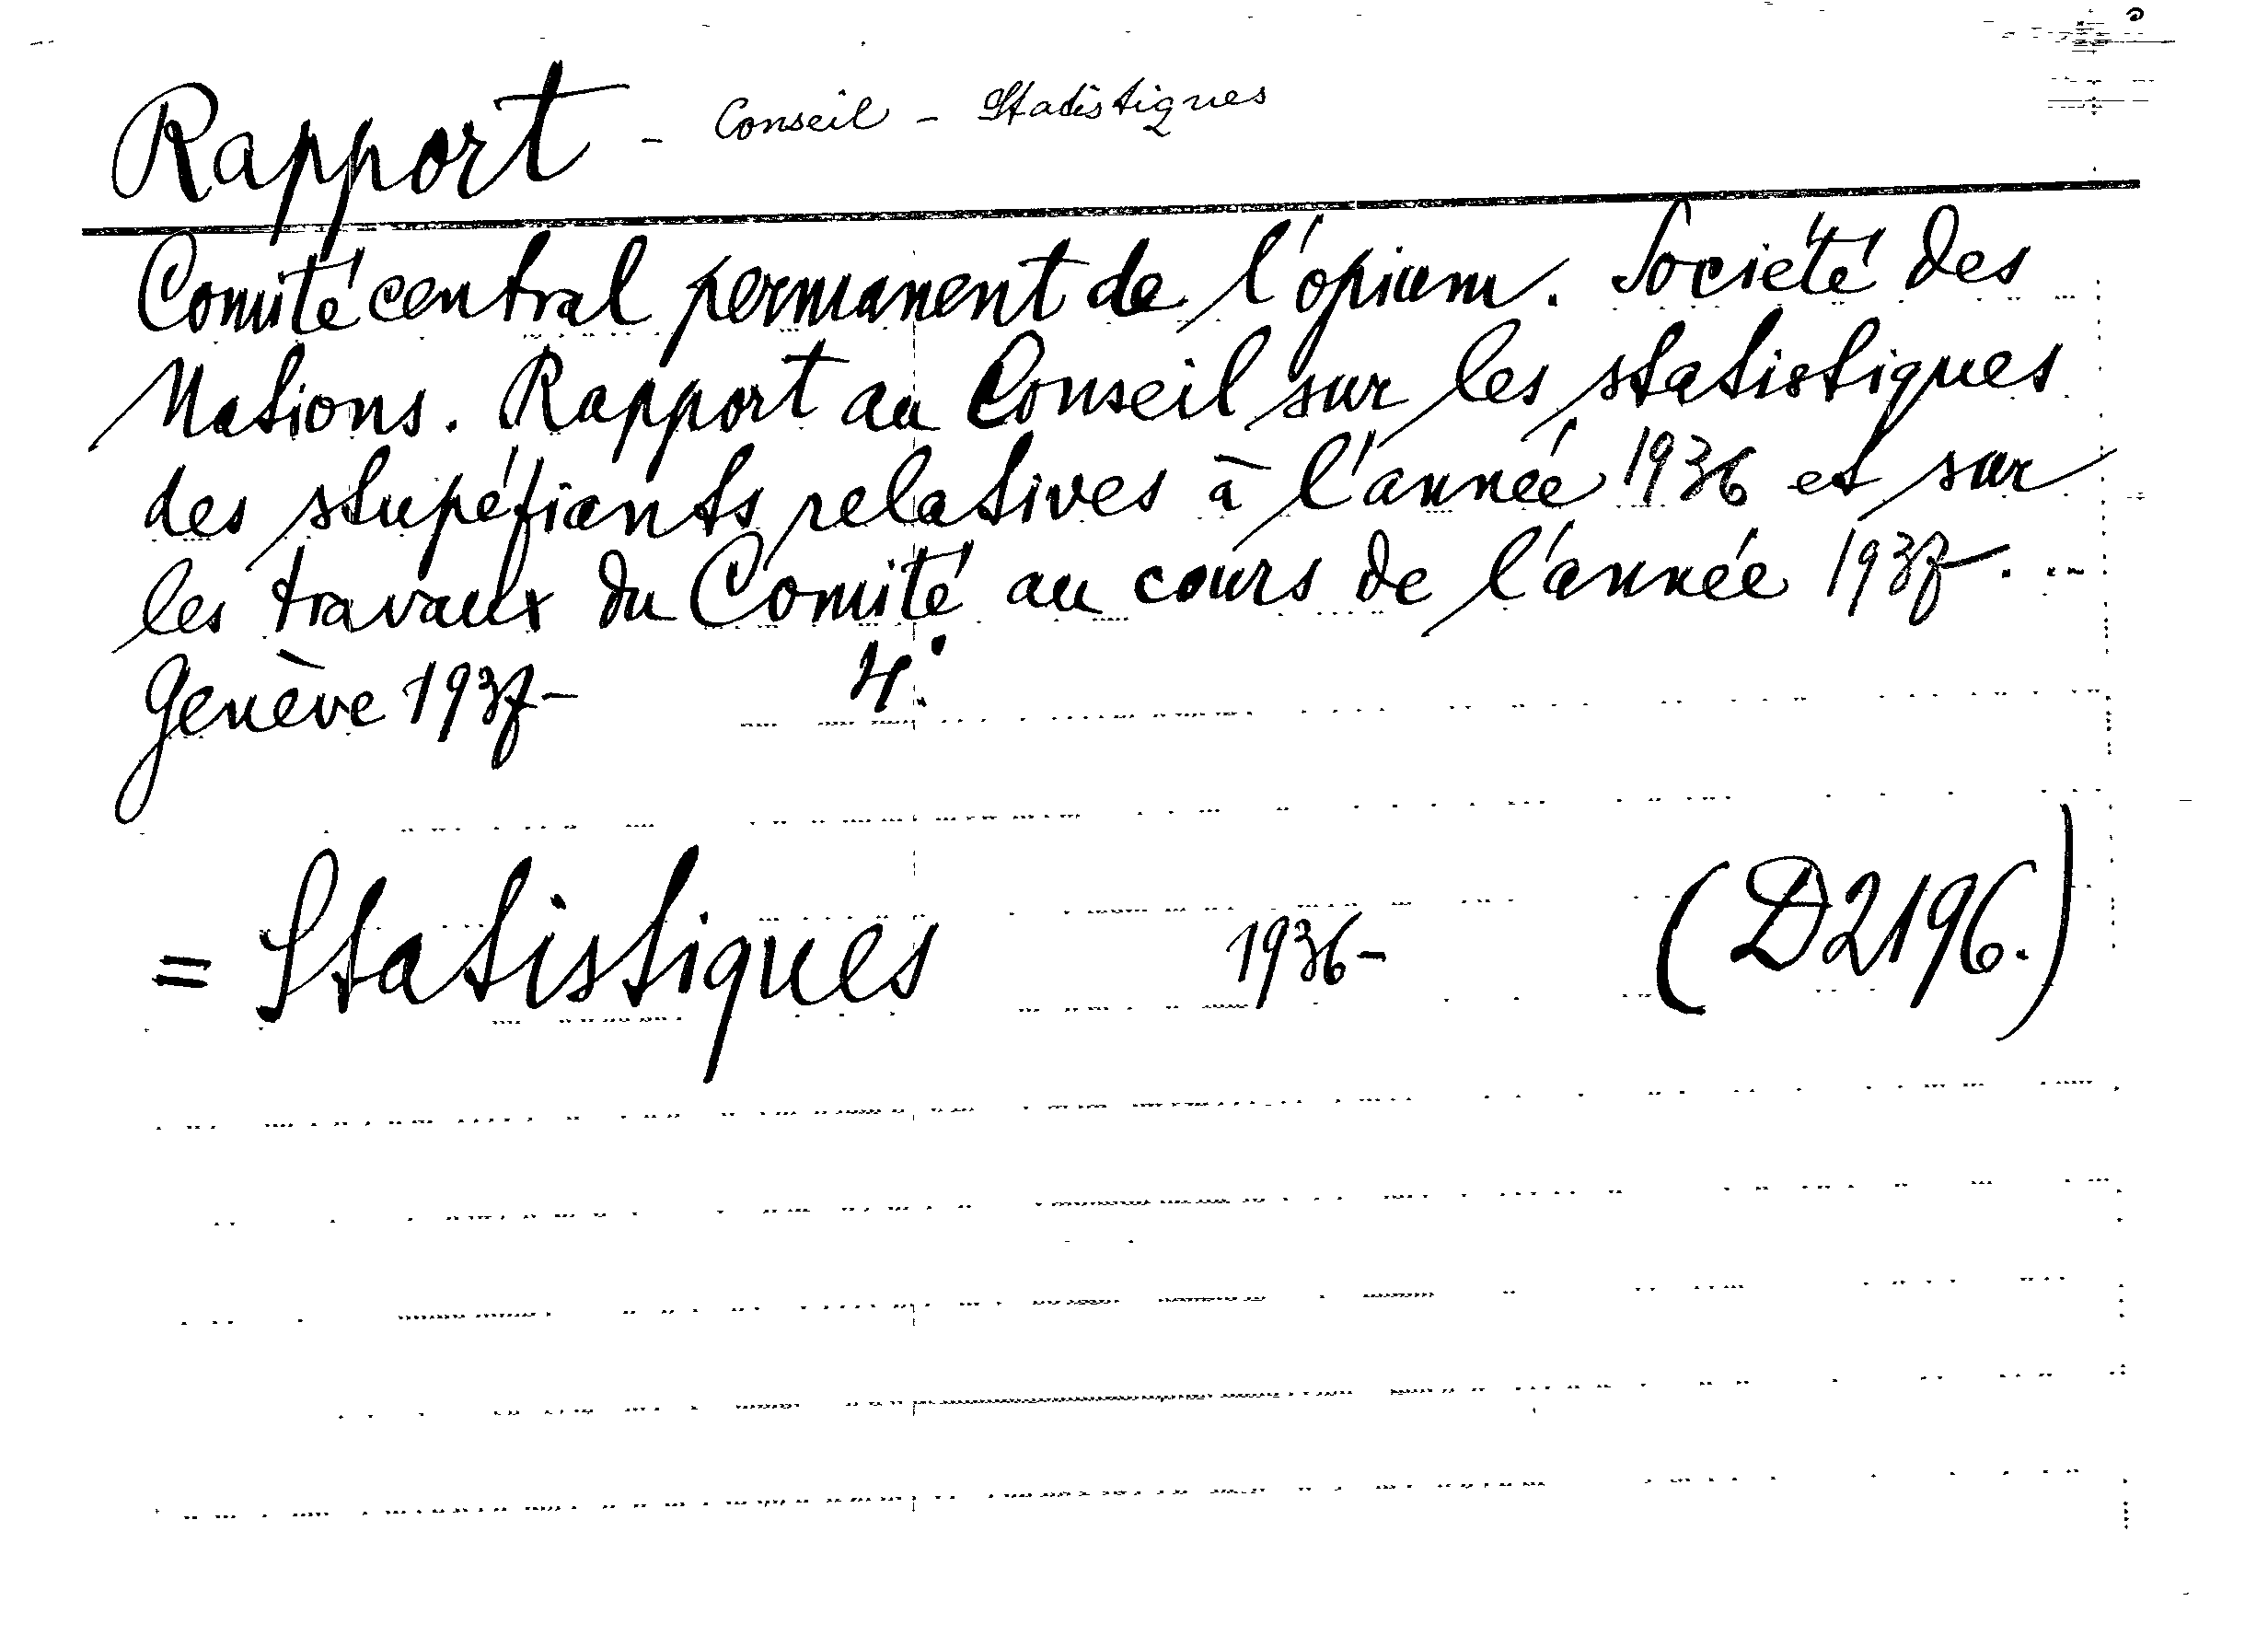 Rapport - Conseil - Statistiques
Comité central permanent de l'opium. Société des
Nations. Rapport au Conseil sur les statistiques
des stupéfiants relatives à l'année 1936 et sur
les travaux du Comité au cours de l'année 1937.
Genève 1937- 4°.
= Statistiques 1936- (D2196.)